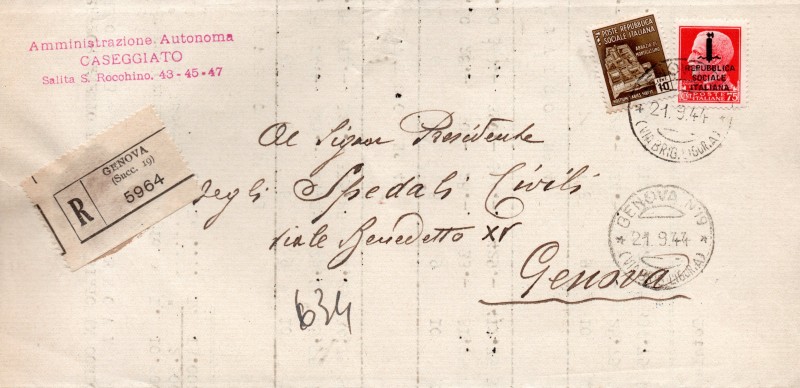 Amministrazione Autonoma
CASEGGIATO
Salita S. Rocchino. 43-45-47
POSTE REPUBBLICA
SOCIALE ITALIANA
REPUBBLICA
SOCIALE
ITALIANA
21.9.44
(VIA BRIG. LIGURIA)
GENOVA
(Succ. 19)
R
5964
Al Signor Presidente
degli Spedali Civili
viale Benedetto XV
Genova
GENOVA N.19
21.9.44
(VIA BRIG. LIGURIA)
634